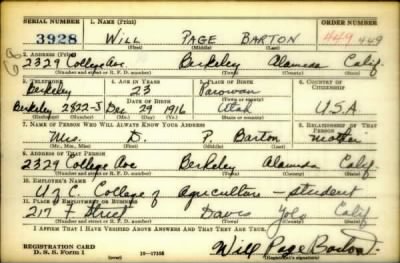 SERIAL NUMBER 1. NAME (Print) ORDER NUMBER
3928 WILL PAGE BARTON 449 449
(First) (Middle) (Last)
68
2. ADDRESS (Print)
2329 College Ave. Berkeley Alameda Calif.
(Number and street or R. F. D. number) (Town) (County) (State)
3. TELEPHONE 4. AGE IN YEARS 5. PLACE OF BIRTH 6. COUNTRY OF CITIZENSHIP
Berkeley 23 Parowan
DATE OF BIRTH
Berkeley 2822-J Dec 29 1916 Utah U.S.A.
(Exchange) (Number) (Mo.) (Day) (Yr.) (State or country)
7. NAME OF PERSON WHO WILL ALWAYS KNOW YOUR ADDRESS 8. RELATIONSHIP OF THAT PERSON
Mrs. D. P. Barton mother
(Mr., Mrs., Miss) (First) (Middle) (Last)
9. ADDRESS OF THAT PERSON
2329 College Ave Berkeley Alameda Calif.
(Number and street or R. F. D. number) (Town) (County) (State)
10. EMPLOYER'S NAME
College of Agriculture – student
11. PLACE OF EMPLOYMENT OR BUSINESS
217 Street Davis Yolo Calif
(Number and street or R. F. D. number) (Town) (County) (State)
I AFFIRM THAT I HAVE VERIFIED ABOVE ANSWERS AND THAT THEY ARE TRUE.
REGISTRATION CARD
D. S. S. Form 1 (over) 16—17105 Will Page Barton
(Registrant's signature)